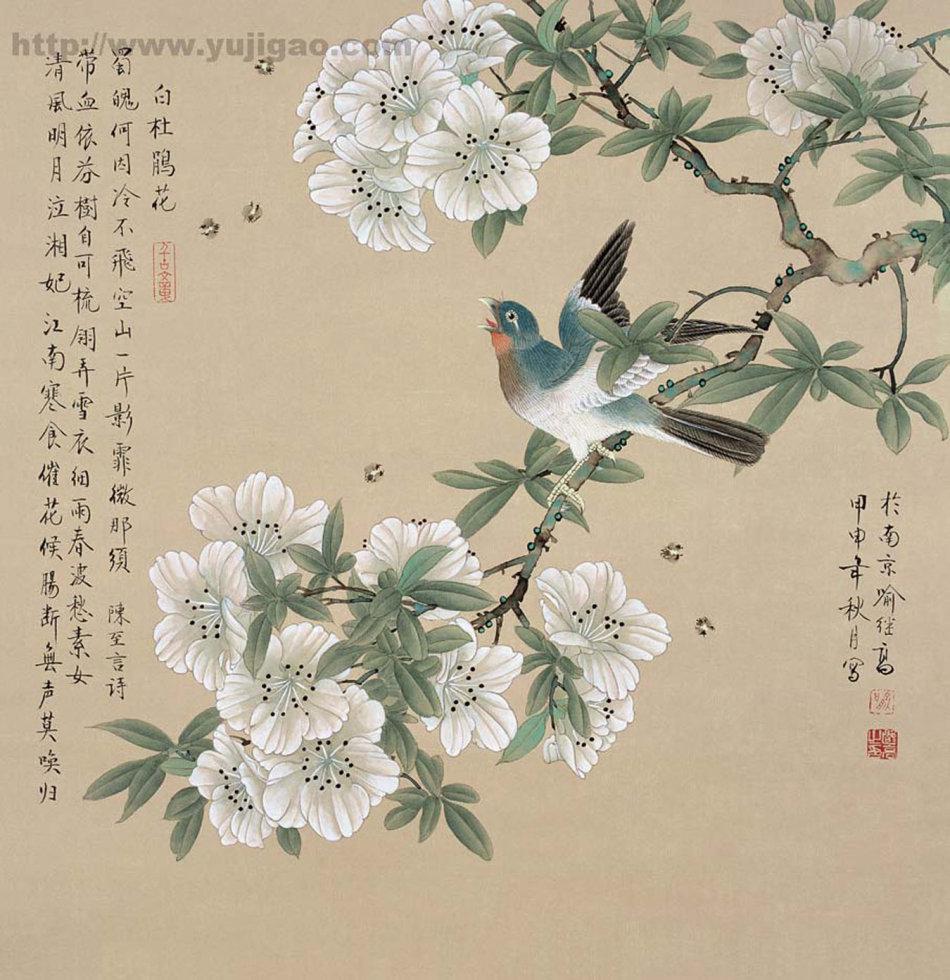 http://www.yujigao.com
白杜鹃花
蜀魄何因冷不飛空山一片影霏微那須
帶血依芬樹自可梳翎弄雪衣细雨春波愁素女
清風明月泣湘妃江南寒食催花候腸断無声莫唤归
陳至言诗
於南京喻继高
甲申年秋月寫